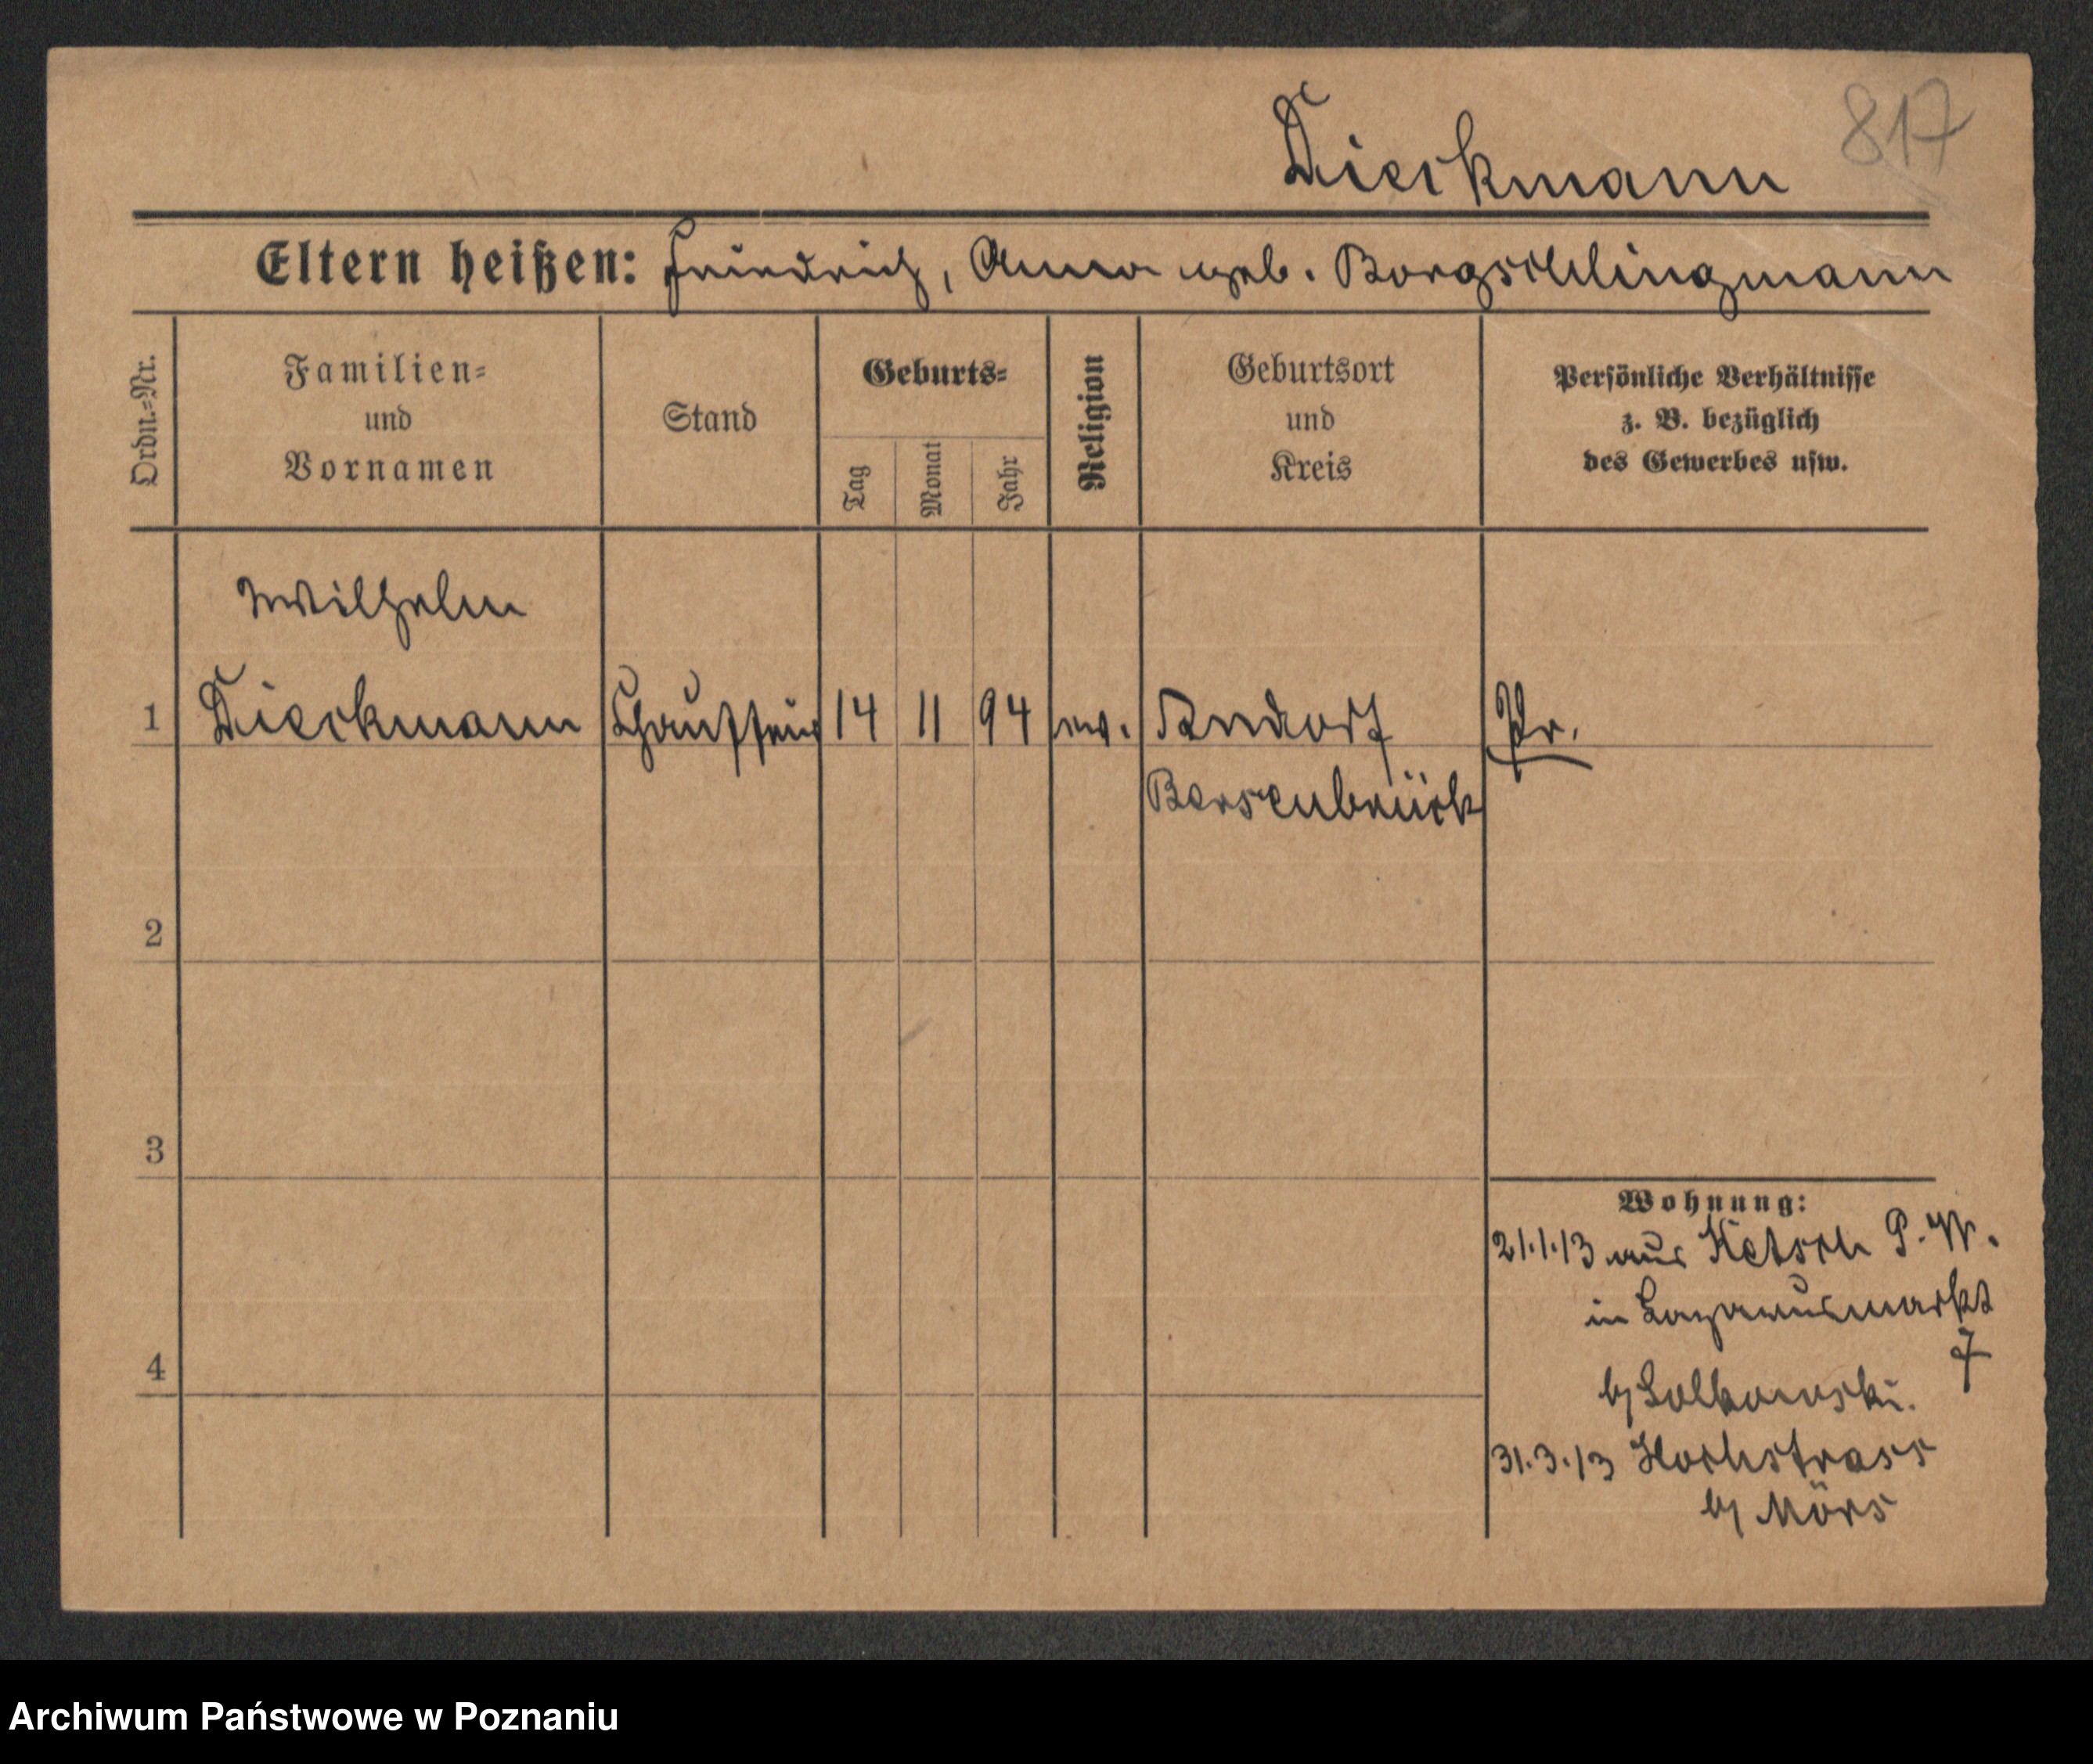 Dieckmann 817
Eltern heißen: Friedrich, Anna geb. Borgschlingmann
Ordn.=Nr.
Familien=
und
Vornamen
Stand
Geburts=
Tag
Monat
Jahr
Religion
Geburtsort
und
Kreis
Persönliche Verhältnisse
z. B. bezüglich
des Gewerbes usw.
Wilhelm
1 Dieckmann 14 11 94 ev. Pr.
Bersenbrück
2
3
4
Wohnung:
21.1.13 aus Ketsch P. W.
in Lazarusmarkt
7
b/
31.3.13 Hochstrass
b/ Mörs
Archiwum Państwowe w Poznaniu